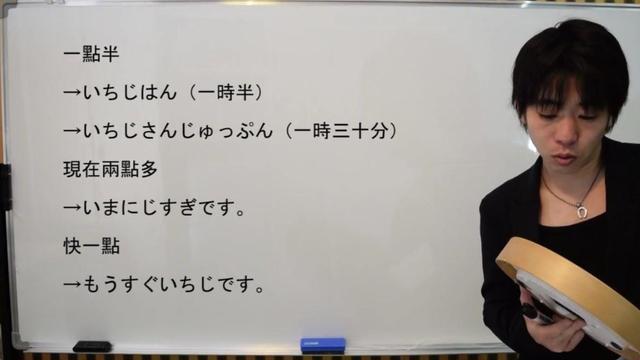 一點半
→いちじはん（一時半）
→いちじさんじゅっぷん（一時三十分）
現在兩點多
→いまにじすぎです。
快一點
→もうすぐいちじです。